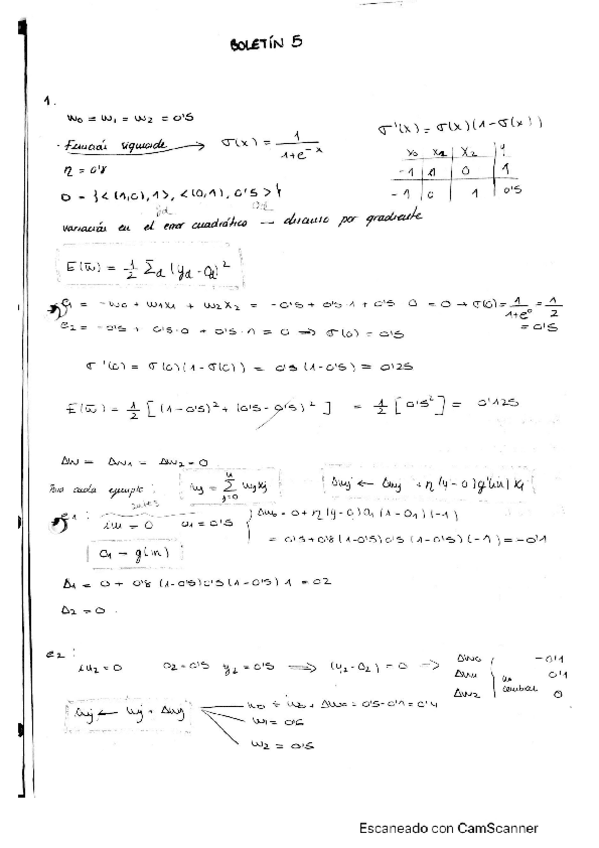 BOLETÍN 5
1.
w0 = w1 = w2 = 0'5
· Función sigmoide → σ(x) = 1/(1+e^-x)
σ'(x) = σ(x)(1-σ(x))
η = 0'8
x0 x1 x2 y
-1 1 0 1
-1 0 1 0'5
D = {<(1,0),1>, <(0,1), 0'5>}
variación en el error cuadrático — descenso por gradiente
E(w̄) = 1/2 Σd (yd - Od)²
e1 = -w0 + w1x1 + w2x2 = -0'5 + 0'5·1 + 0'5·0 = 0 → σ(0) = 1/(1+e^0) = 1/2 = 0'5
e2 = -0'5 + 0'5·0 + 0'5·1 = 0 ⟹ σ(0) = 0'5
σ'(0) = σ(0)(1-σ(0)) = 0'5 (1-0'5) = 0'25
E(w̄) = 1/2 [(1-0'5)² + (0'5-0'5)²] = 1/2 [0'5²] = 0'125
Δw0 = Δw1 = Δw2 = 0
Para cada ejemplo:
Δwj ← Δwj + η(y-O)g'(in) xj
e1: in1 = 0 O1 = 0'5 Δw0 = 0 + η(y-O1)O1(1-O1)(-1)
= 0'5+0'8(1-0'5)0'5(1-0'5)(-1) = -0'1
O1 = g(in)
Δ1 = 0 + 0'8 (1-0'5)0'5(1-0'5) 1 = 02
Δ2 = 0
e2: in2 = 0 O2 = 0'5 y2 = 0'5 ⟹ (y2-O2) = 0 →
Δw0 -0'1
Δw1 0'1
Δw2 0
wj ← wj + Δwj
w0 = w0 + Δw0 = 0'5-0'1 = 0'4
w1 = 0'6
w2 = 0'5
Escaneado con CamScanner